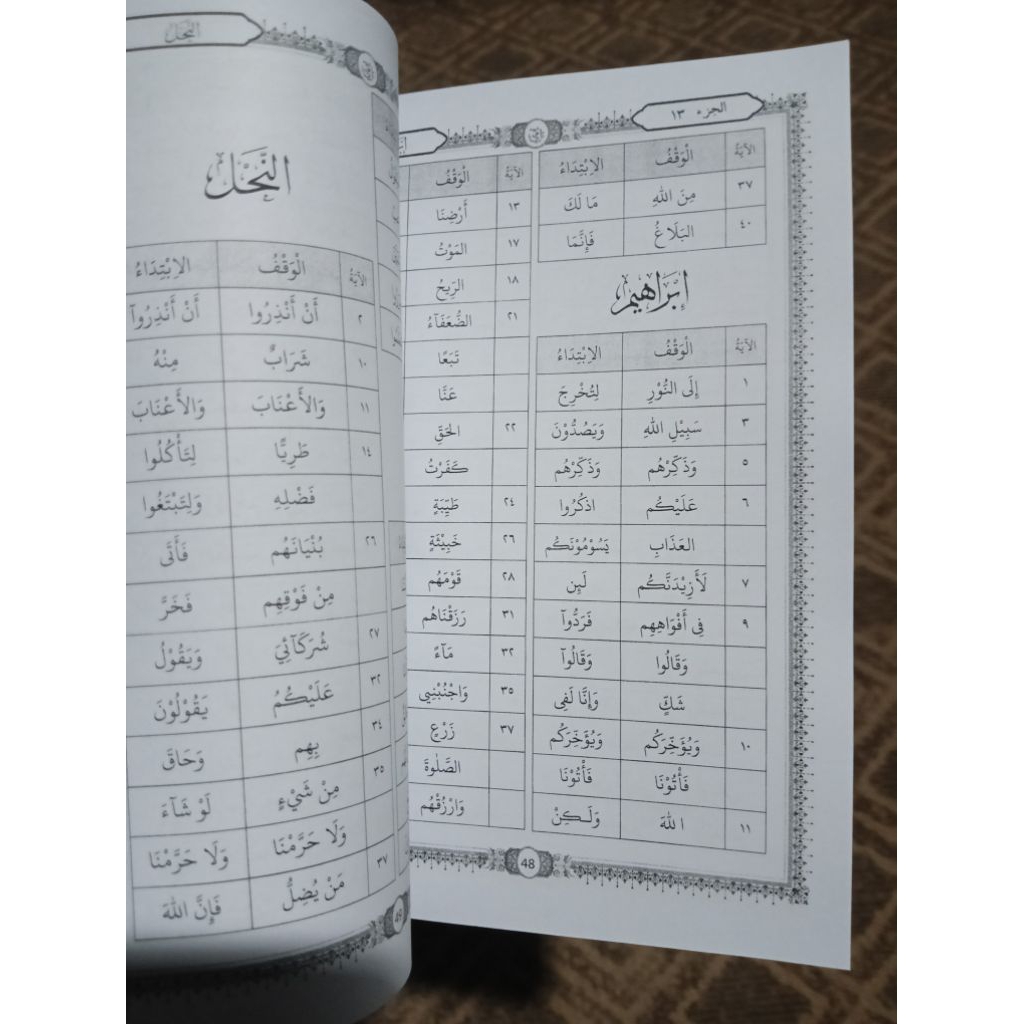 الجزء ١٣
الآيَةُ الْوَقْفُ الاِبْتِدَاءُ
٣٧ مِنَ اللهِ مَا لَكَ
٤٠ البَلَاغُ فَإِنَّمَا
إِبْرَاهِيْم
الآيَةُ الْوَقْفُ الاِبْتِدَاءُ
١ إِلَى النُّوْرِ لِتُخْرِجَ
٣ سَبِيْلِ اللهِ وَيَصُدُّوْنَ
٥ وَذَكِّرْهُم وَذَكِّرْهُم
٦ عَلَيْكُم اذكُرُوا
العَذَابِ يَسُوْمُوْنَكُم
٧ لَأَزِيْدَنَّكُم لَئِن
٩ فِى أَفْوَاهِهِم فَرَدُّوآ
وَقَالُوا وَقَالُوآ
شَكٍّ وَإِنَّا لَفِى
١٠ وَيُؤَخِّرَكُم وَيُؤَخِّرَكُم
فَأْتُوْنَا فَأْتُوْنَا
١١ اللهَ وَلَـكِنْ
الآيَةُ الْوَقْفُ
١٣ أَرْضِنَا
١٧ المَوْتُ
١٨ الرِّيحُ
٢١ الضُّعَفَآءُ
تَبَعًا
عَنَّا
٢٢ الحَقِّ
كَفَرْتُ
٢٤ طَيِّبَةٍ
٢٦ خَبِيْثَةٍ
٢٨ قَوْمَهُم
٣١ رَزَقْنَاهُم
٣٢ مَآءً
٣٥ وَاجْنُبْنِيي
٣٧ زَرْعٍ
الصَّلٰوةَ
وَارْزُقْهُم
48
النَّحل
النَّحْل
الآيَةُ الْوَقْفُ الاِبْتِدَاءُ
٢ أَنْ أَنْذِرُوا أَنْ أَنْذِرُوآ
١٠ شَرَابٌ مِنْهُ
١١ وَالأَعْنَابَ وَالأَعْنَابَ
١٤ طَرِيًّا لِتَأْكُلُوا
فَضْلِهِ وَلِتَبْتَغُوا
٢٦ بُنْيَانَهُم فَأَتَى
مِنْ فَوْقِهِم فَخَرَّ
٢٧ شُرَكَآئِيَ وَيَقُوْلُ
٣٢ عَلَيْكُمُ يَقُوْلُوْنَ
٣٤ بِهِم وَحَاقَ
٣٥ مِنْ شَيْءٍ لَوْ شَآءَ
وَلَا حَرَّمْنَا وَلَا حَرَّمْنَا
٣٧ مَنْ يُضِلُّ فَإِنَّ اللهَ
49